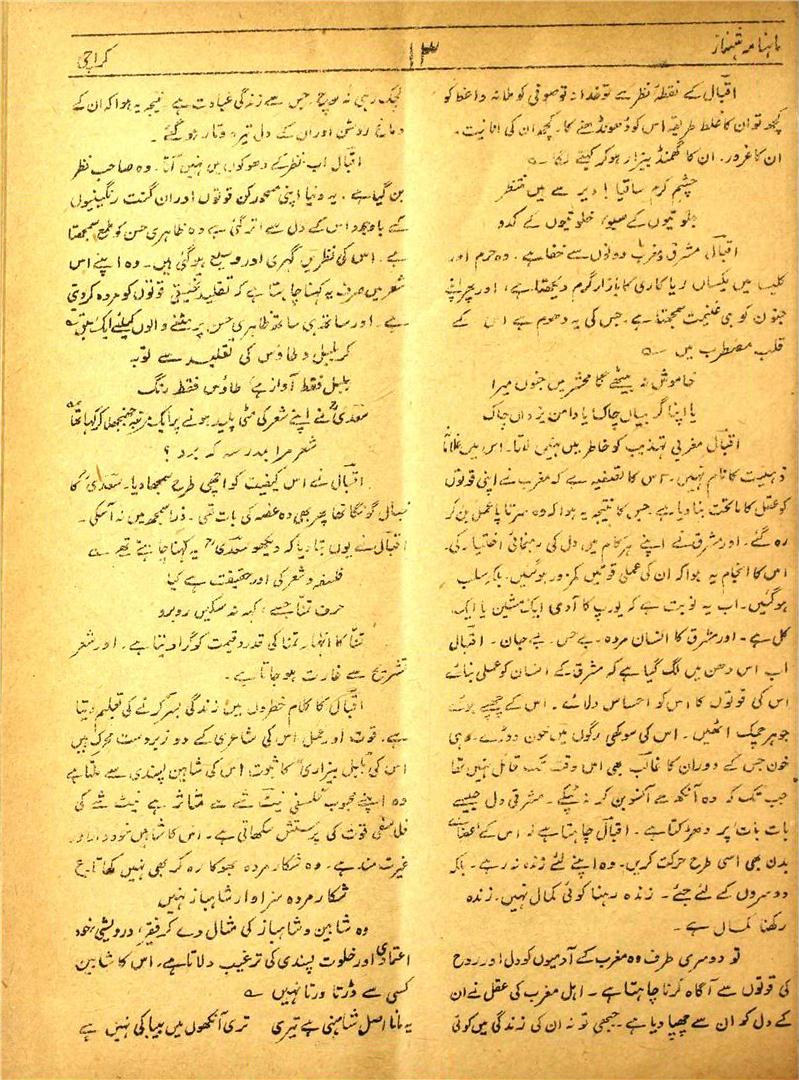 ماہنامہ شہناز
۱۳
کراچی
اقبال کے نقطۂ نظر سے تو خدا نہ تو صوفی کو ملا نہ واعظ کو
کچھ تو ان کا غلط طریقہ اس کو ڈھونڈھنے کا۔ کچھ ان کی انانیت۔
ان کا غرور۔ ان کا گھمنڈ بیزار ہو کر کہنے لگا۔ ؎
چشمِ کرم ساقیا! دیر سے ہیں منتظر
جلوتیوں کے سبو، خلوتیوں کے کدو
اقبال مشرق و مغرب دونوں سے خفا ہے۔ وہ حرم اور
کلیسا میں یکساں ریاکاری کا بازار گرم دیکھتا ہے، اور پھر اپنے
جنون کو ہی غنیمت سمجھتا ہے۔ جس کی یہ دھوم ہے اس کے
قلب مضطرب میں ؎
خاموش نہ بیٹھے گا محشر میں جنوں میرا
یا اپنا گریباں چاک یا دامن یزداں چاک
اقبال مغربی تہذیب کو خاطر میں نہیں لاتا۔ اس میں غلامانہ
ذہنیت کا نام نہیں۔ اس کا تصفیہ ہے کہ مغرب نے اپنی قوتوں
کو عقل کا ماتحت بنا دیا ہے جس کا نتیجہ یہ ہوا کہ وہ سرتاپا عمل بن کر
رہ گئے۔ اور مشرق نے اپنے ہر کام میں دل کی رہنمائی اختیار کی۔
اس کا انجام یہ ہوا کہ ان کی عملی قوتیں کمزور ہو گئیں۔ بلکہ سلب
ہو گئیں۔ اب یہ نوبت ہے کہ یورپ کا آدمی ایک مشین یا ایک
کل ہے۔ اور مشرق کا انسان مردہ۔ بے حس۔ بے جان۔ اقبال
اب اس دھن میں لگ گیا ہے کہ مشرق کے انسان کو عملی بنائے
اس کی قوتوں کا اس کو احساس دلائے۔ اس کے چھپے ہوئے
جوہر چمک اٹھیں۔ اس کی سوکھی رگوں میں خون دوڑے۔ وہی
خون جس کے دوران کا غالب بھی اس وقت تک قائل نہیں تھا
جب تک کہ وہ آنکھ سے آنسو بن کر نہ ٹپکے۔ مشرقی دل جیسے
بات بات پر دھڑکتا ہے۔ اقبال چاہتا ہے نہ اس کے اعضائے
بدن بھی اسی طرح حرکت کریں۔ وہ اپنے لئے زندہ نہ رہے۔ بلکہ
دوسروں کے لئے جئے۔ زندہ رہنا کوئی کمال نہیں۔ زندہ
رکھنا کمال ہے۔
تو دوسری طرف وہ مغرب کے آدمیوں کو دل اور روح
کی قوتوں سے آگاہ کرنا چاہتا ہے۔ اہل مغرب کی عقل نے ان
کے دل کو ان سے چھپا دیا ہے۔ جبھی تو نہ ان کی زندگی میں کوئی
لچک رہی نہ لوچ، جس سے زندگی عبادت ہے نتیجہ یہ ہوا کہ ان کے
دماغ روشن اور ان کے دل تیرہ و تار ہو گئے۔
اقبال اب نظر کے دھوکوں میں نہیں آتا۔ وہ صاحب نظر
بن گیا ہے۔ یہ دنیا اپنی مسحور کن قوتوں اور ان گنت رنگینیوں
کے باوجود اس کے دل سے اتر گئی ہے وہ ظاہری حسن کو ملمع سمجھتا
ہے۔ اس کی نظریں گہری اور وسیع ہو گئی ہیں۔ وہ اپنے اس
شعر میں صرف یہ کہنا چاہتا ہے کہ تقلید تخلیقی قوتوں کو مردہ کر دیتی
ہے۔ اور ساتھ ہی ساتھ ظاہری حسن پر مٹنے والوں کیلئے ایک سبق ہے ؎
کر بلبل و طاؤس کی تقلید سے توبہ
بلبل فقط آواز ہے طاؤس فقط رنگ
سعدیؒ نے اپنے شعر کی مٹی پلید ہونے پر ایک مرتبہ جھنجھلا کر کہا تھا ؎
شعر مرا بمدرسہ کہ برد؟
اقبال نے اس کیفیت کو اچھی طرح سمجھا دیا۔ سعدیؒ کا
خیال گونگا تھا پھر بھی وہ غصہ کی بات تھی۔ ذرا سمجھ میں نہ آسکی۔
اقبال نے یوں بتا دیا کہ دیکھو سعدیؒ یہ کہنا چاہتے تھے ؎
فلسفہ و شعر کی اور حقیقت ہے کیا
حرف تمنا جسے، کہہ نہ سکیں روبرو
تمنا کا اظہار تمنا کی قدر و قیمت کو گرا دیتا ہے۔ اور شعر
تشریح سے غارت ہو جاتا ہے۔
اقبال کا کلام خطروں میں زندگی بسر کرنے کی تعلیم دیتا
ہے۔ قوت اور عمل اس کی شاعری کے دو زبردست محرک ہیں
اس کی "بلبل بیزاری" کا ثبوت اس کی شاہین پسندی سے ملتا ہے
وہ اپنے محبوب فلسفی نیٹ شے سے متاثر ہے نیٹ شے کی
فلاسفی قوت کی پرستش سکھاتی ہے۔ اس کا شاہین خوددار اور
غیرت مند ہے۔ وہ شکار مردہ بھوکا رہ کر بھی نہیں کھاتا۔ ع
شکار مردہ سزاوار شاہباز نہیں
وہ شاہین و شاہباز کی مثال دے کر فقر، درویشی خود
اعتمادی اور خلوت پسندی کی ترغیب دلاتا ہے۔ اس کا شاہین
کسی سے ڈرتا ورتا نہیں ؎
یہ مانا اصل شاہینی ہے تیری تری آنکھوں میں بیباکی نہیں ہے